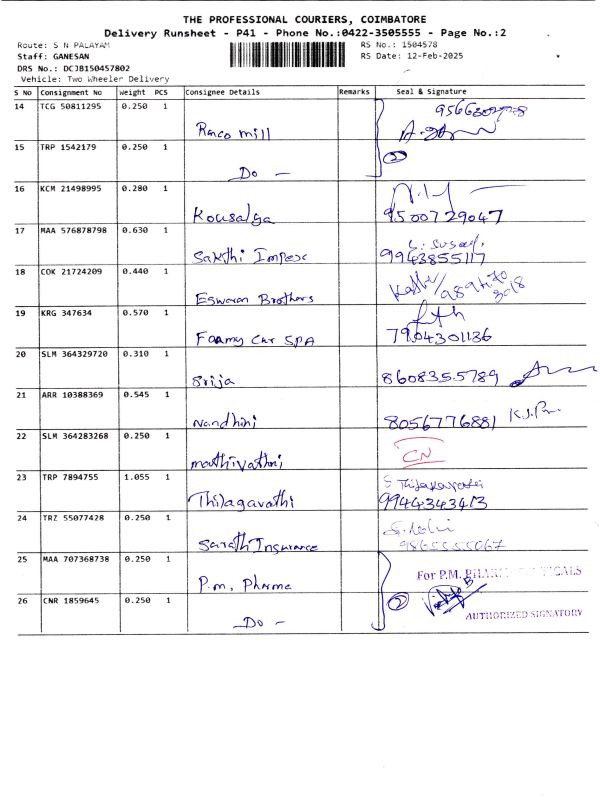 THE PROFESSIONAL COURIERS, COIMBATORE
Delivery Runsheet - P41 - Phone No.:0422-3505555 - Page No.:2
Route: S N PALAYAM
RS No.: 1504578
Staff: GANESAN
RS Date: 12-Feb-2025
DRS No.: DCJB150457802
Vehicle: Two Wheeler Delivery
S No Consignment No Weight PCS Consignee Details Remarks Seal & Signature
14 TCG 50811295 0.250 1 Ranco mill
15 TRP 1542179 0.250 1 Do - 2
16 KCM 21498995 0.280 1 Kousalya 9500729047
17 MAA 576878798 0.630 1 Sakthi Impex 9943855117
18 COK 21724209 0.440 1 Eswaran Brothers
19 KRG 347634 0.570 1 Foamy Car SPA 7904301136
20 SLM 364329720 0.310 1 Srija 8608355789
21 ARR 10388369 0.545 1 Nandhini 8056776881
22 SLM 364283268 0.250 1 mathivathni CN
23 TRP 7894755 1.055 1 Thilagavathi 9944343413
24 TRZ 55077428 0.250 1 Sarath Insurance 9865555067
25 MAA 707368738 0.250 1 P.m. Pharma For P.M.
26 CNR 1859645 0.250 1 Do - 2 AUTHORIZED SIGNATORY